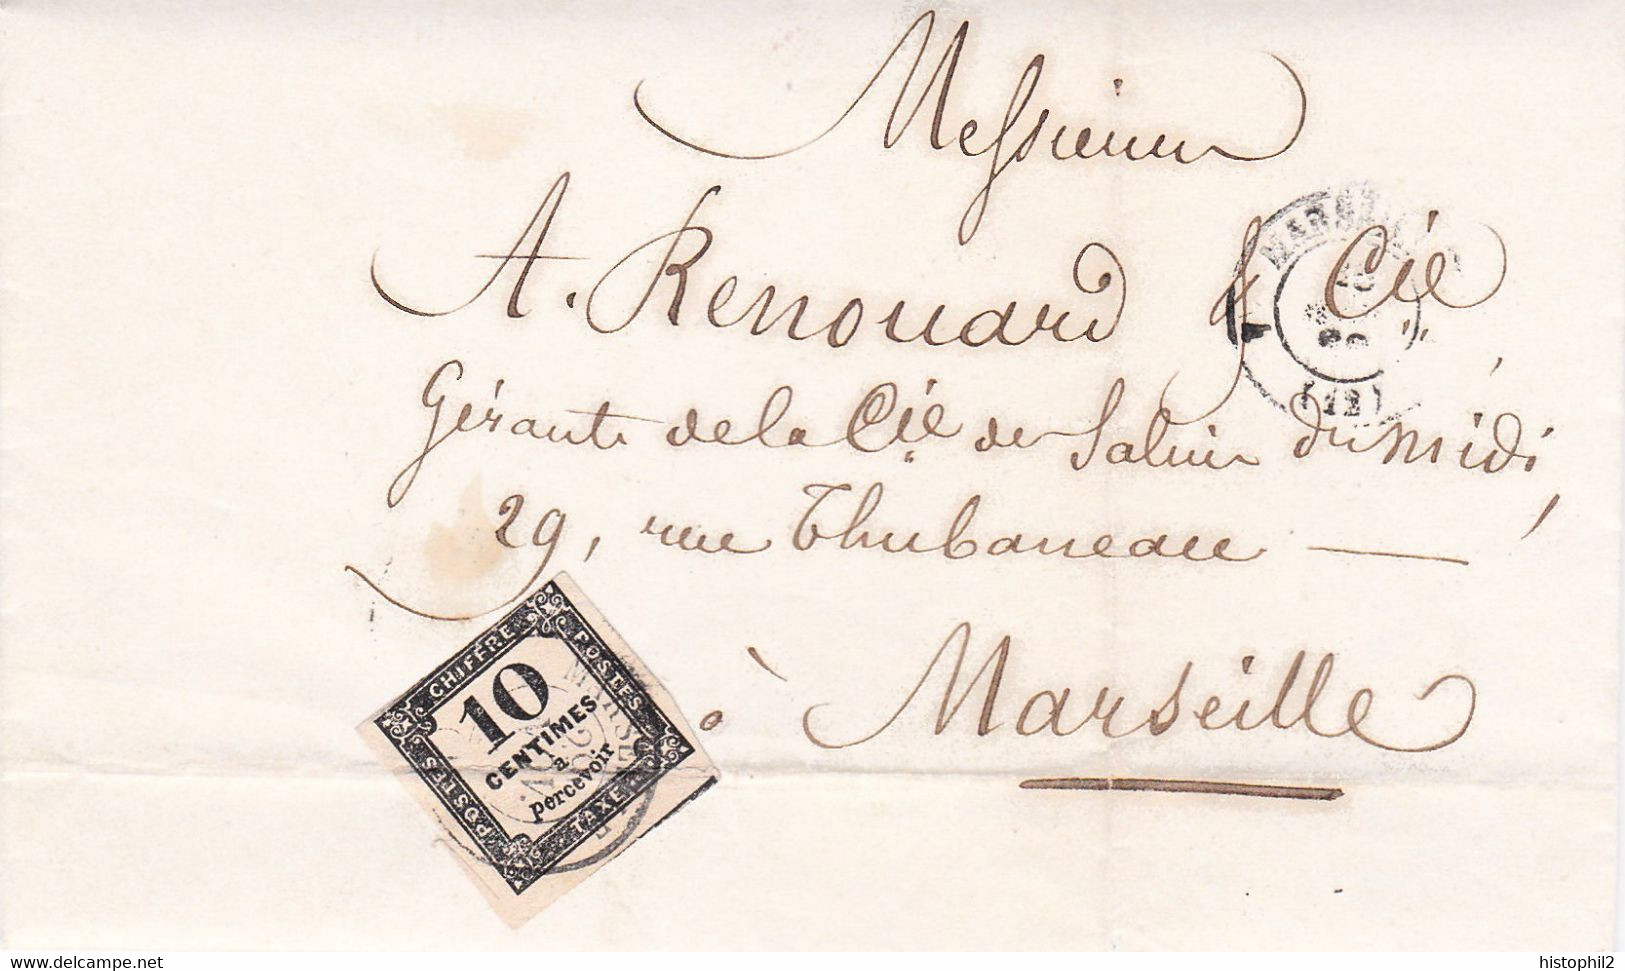 Messieurs
A. Renouard & Cie
Gérants de la Cie des Salins du Midi,
29, rue Thubaneau
à Marseille
MARSEILLE
(12)
CHIFFRE
POSTES
TAXE
POSTES
10
CENTIMES
à
percevoir
MARSEILLE
www.delcampe.net
histophil2